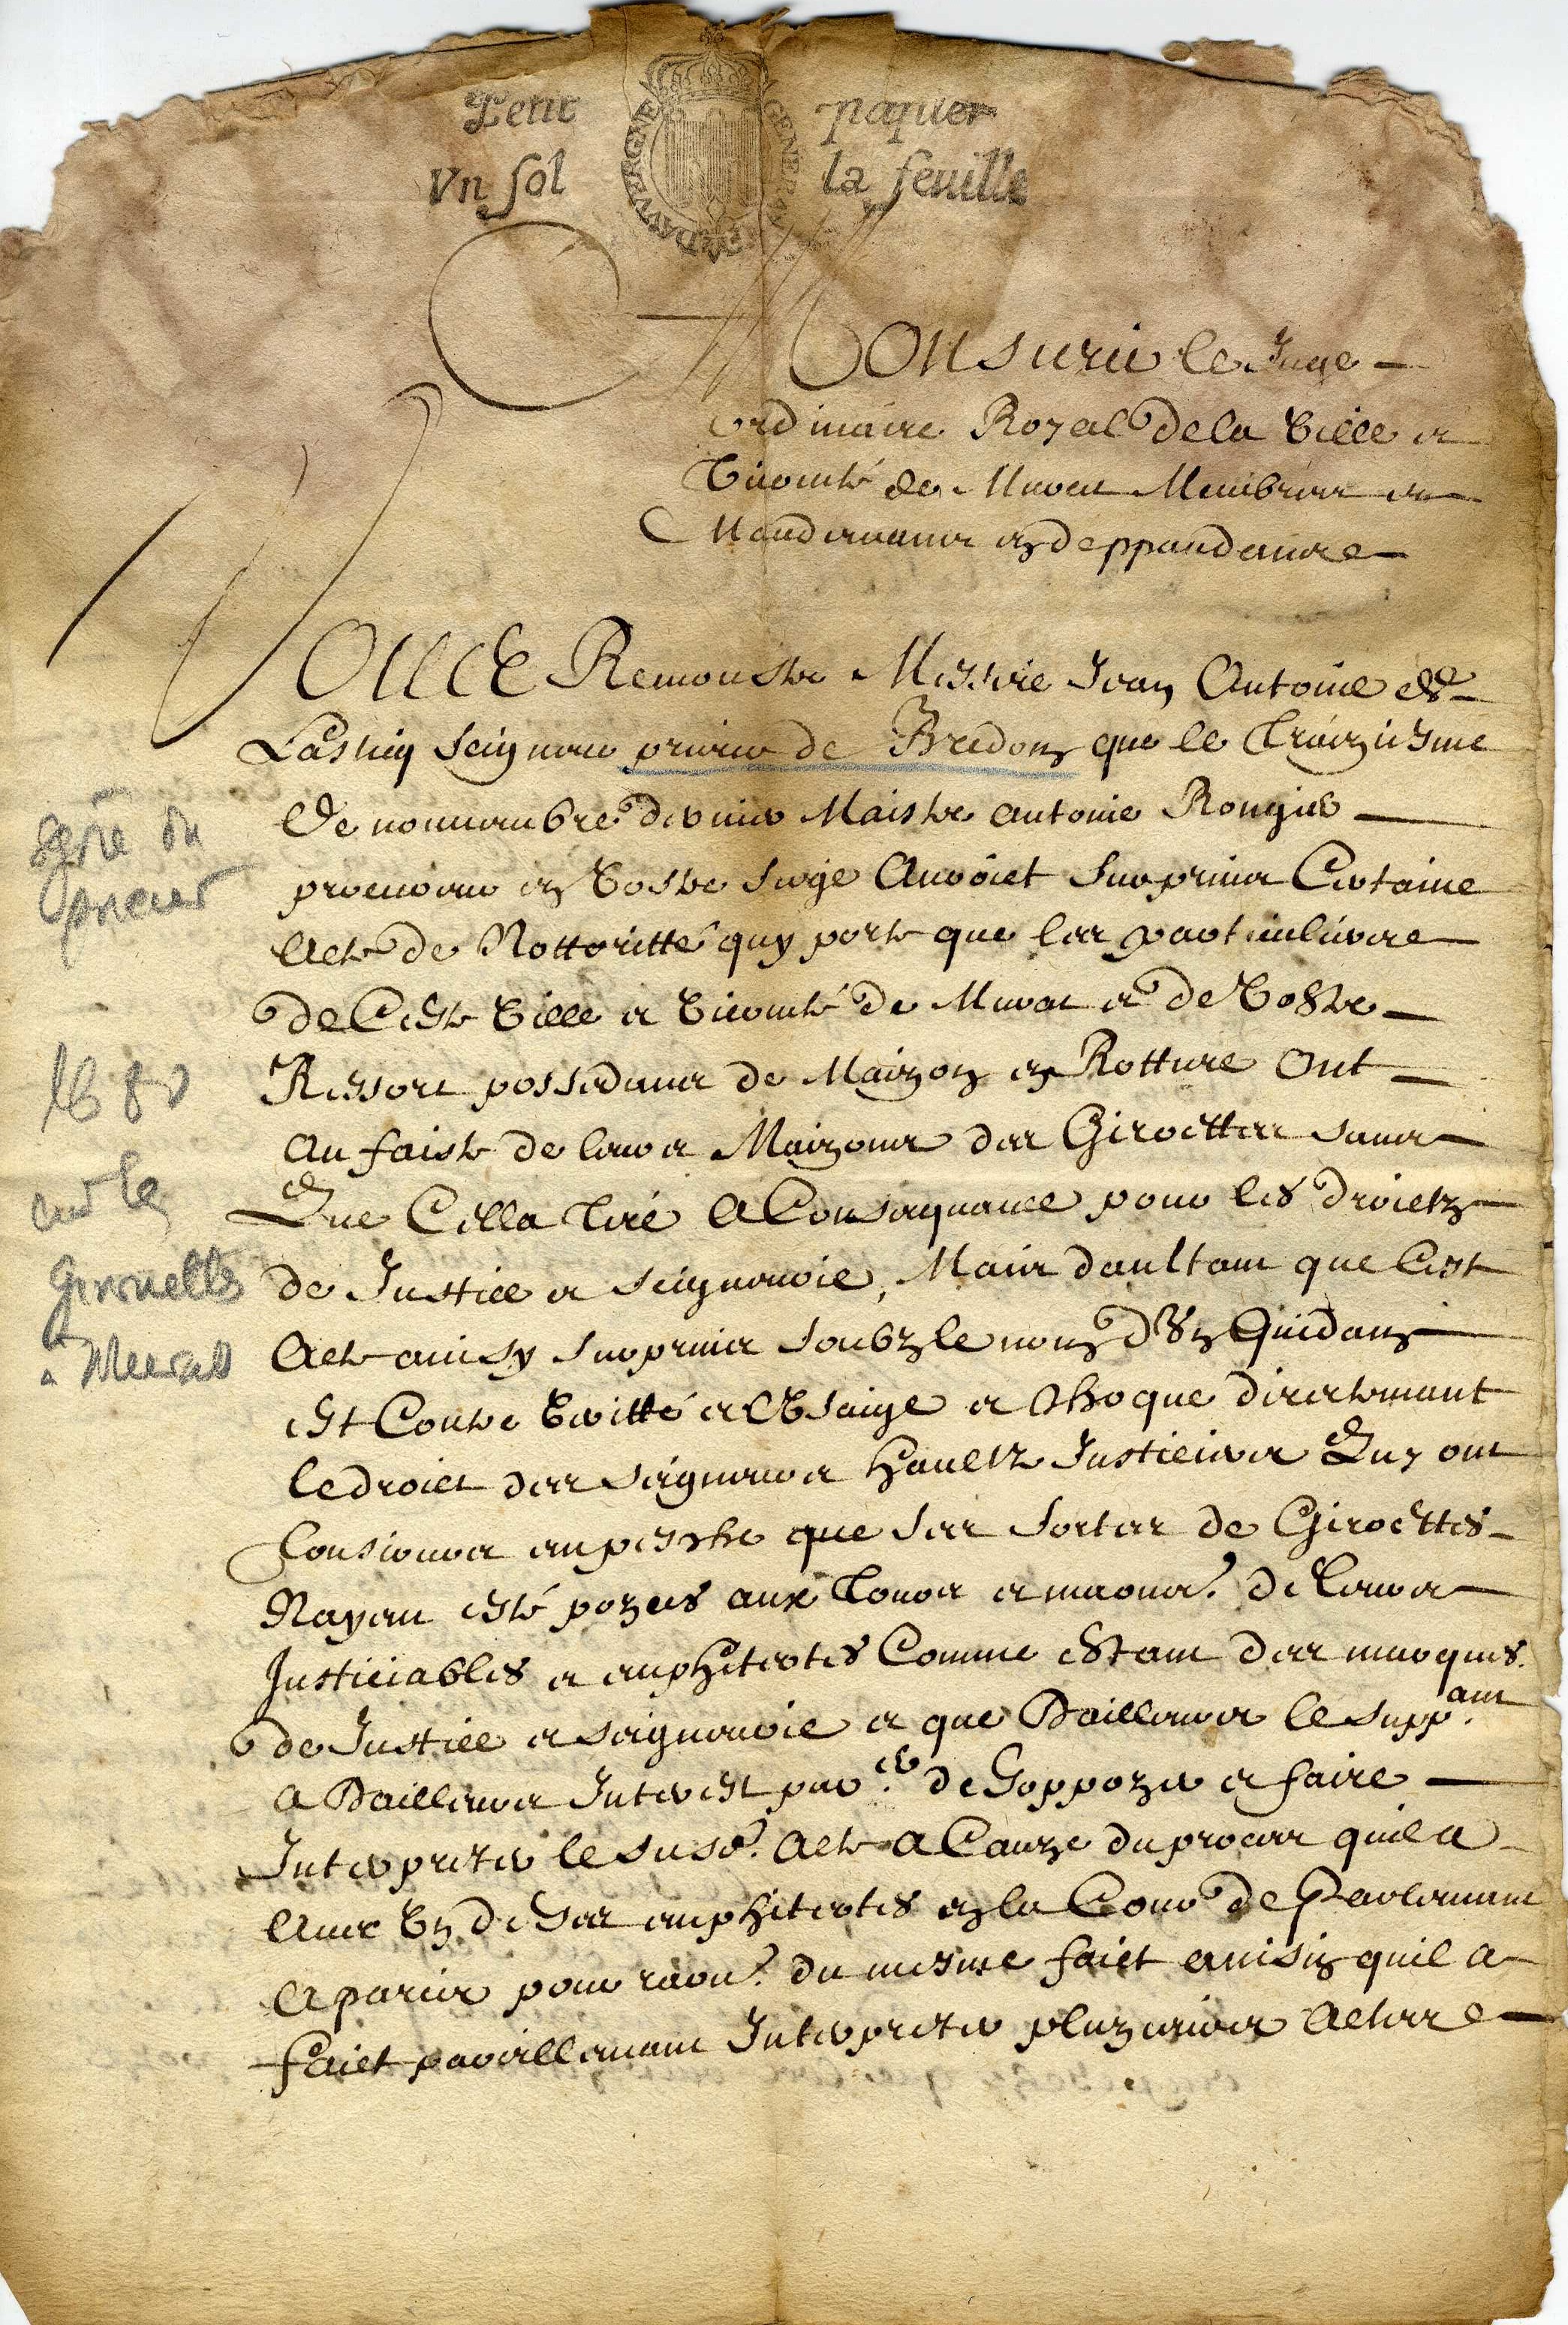 Petit papier
Vn sol la feuille
GENERAL DAVVERGNE
Monsieur le Juge
ordinaire Royal de la Ville et
Vicomté de Murat Membres et
Mandemans en deppandans
Vous Remonstre Messire Jean Antoine de
Lasticq seigneur prieur de Bredon que le Troiziesme
de nouuambre dernier Maistre antoine Rougier
procureur en vostre siege Auroict surprins Certaine
Acte de Nottoritté quy porte que les particuliers
de Ceste Ville et Vicomté de Murat et de Vostre
Ressort possedans de Maizon en Rotture Ont
au faiste de leurs Maizons des Giroettes sans
Que Cella Tire A Consequance pour les droictz
de Justice et seigneurie, Mais daultant que Cest
Acte ainsy surprins soubz le nom d'Vn Quidam
est Contre Veritté et l'Vsaige et choque directemant
le droict des seigneurs haultz Justiciers Quy ont
tousiours empesche que ses sortes de Giroettes
Nayent esté pozees aux Tours et maons. de leurs
Justiciables et emphiteotes Comme estant des marques
de Justice et seigneurie et que Dailleurs le suppant.
A Dailleurs Interest par.er de soppozer et faire
Interpreter le susd. Acte A Cauze du proces quil a
Auec Vn de ses emphiteotes en la Cour de Parlemant
A paris pour raon. du mesme faict ainsin quil a
faict pareillemant Interpreter pluzieurs Actes
1680
sur les
Girouettes
à Murat